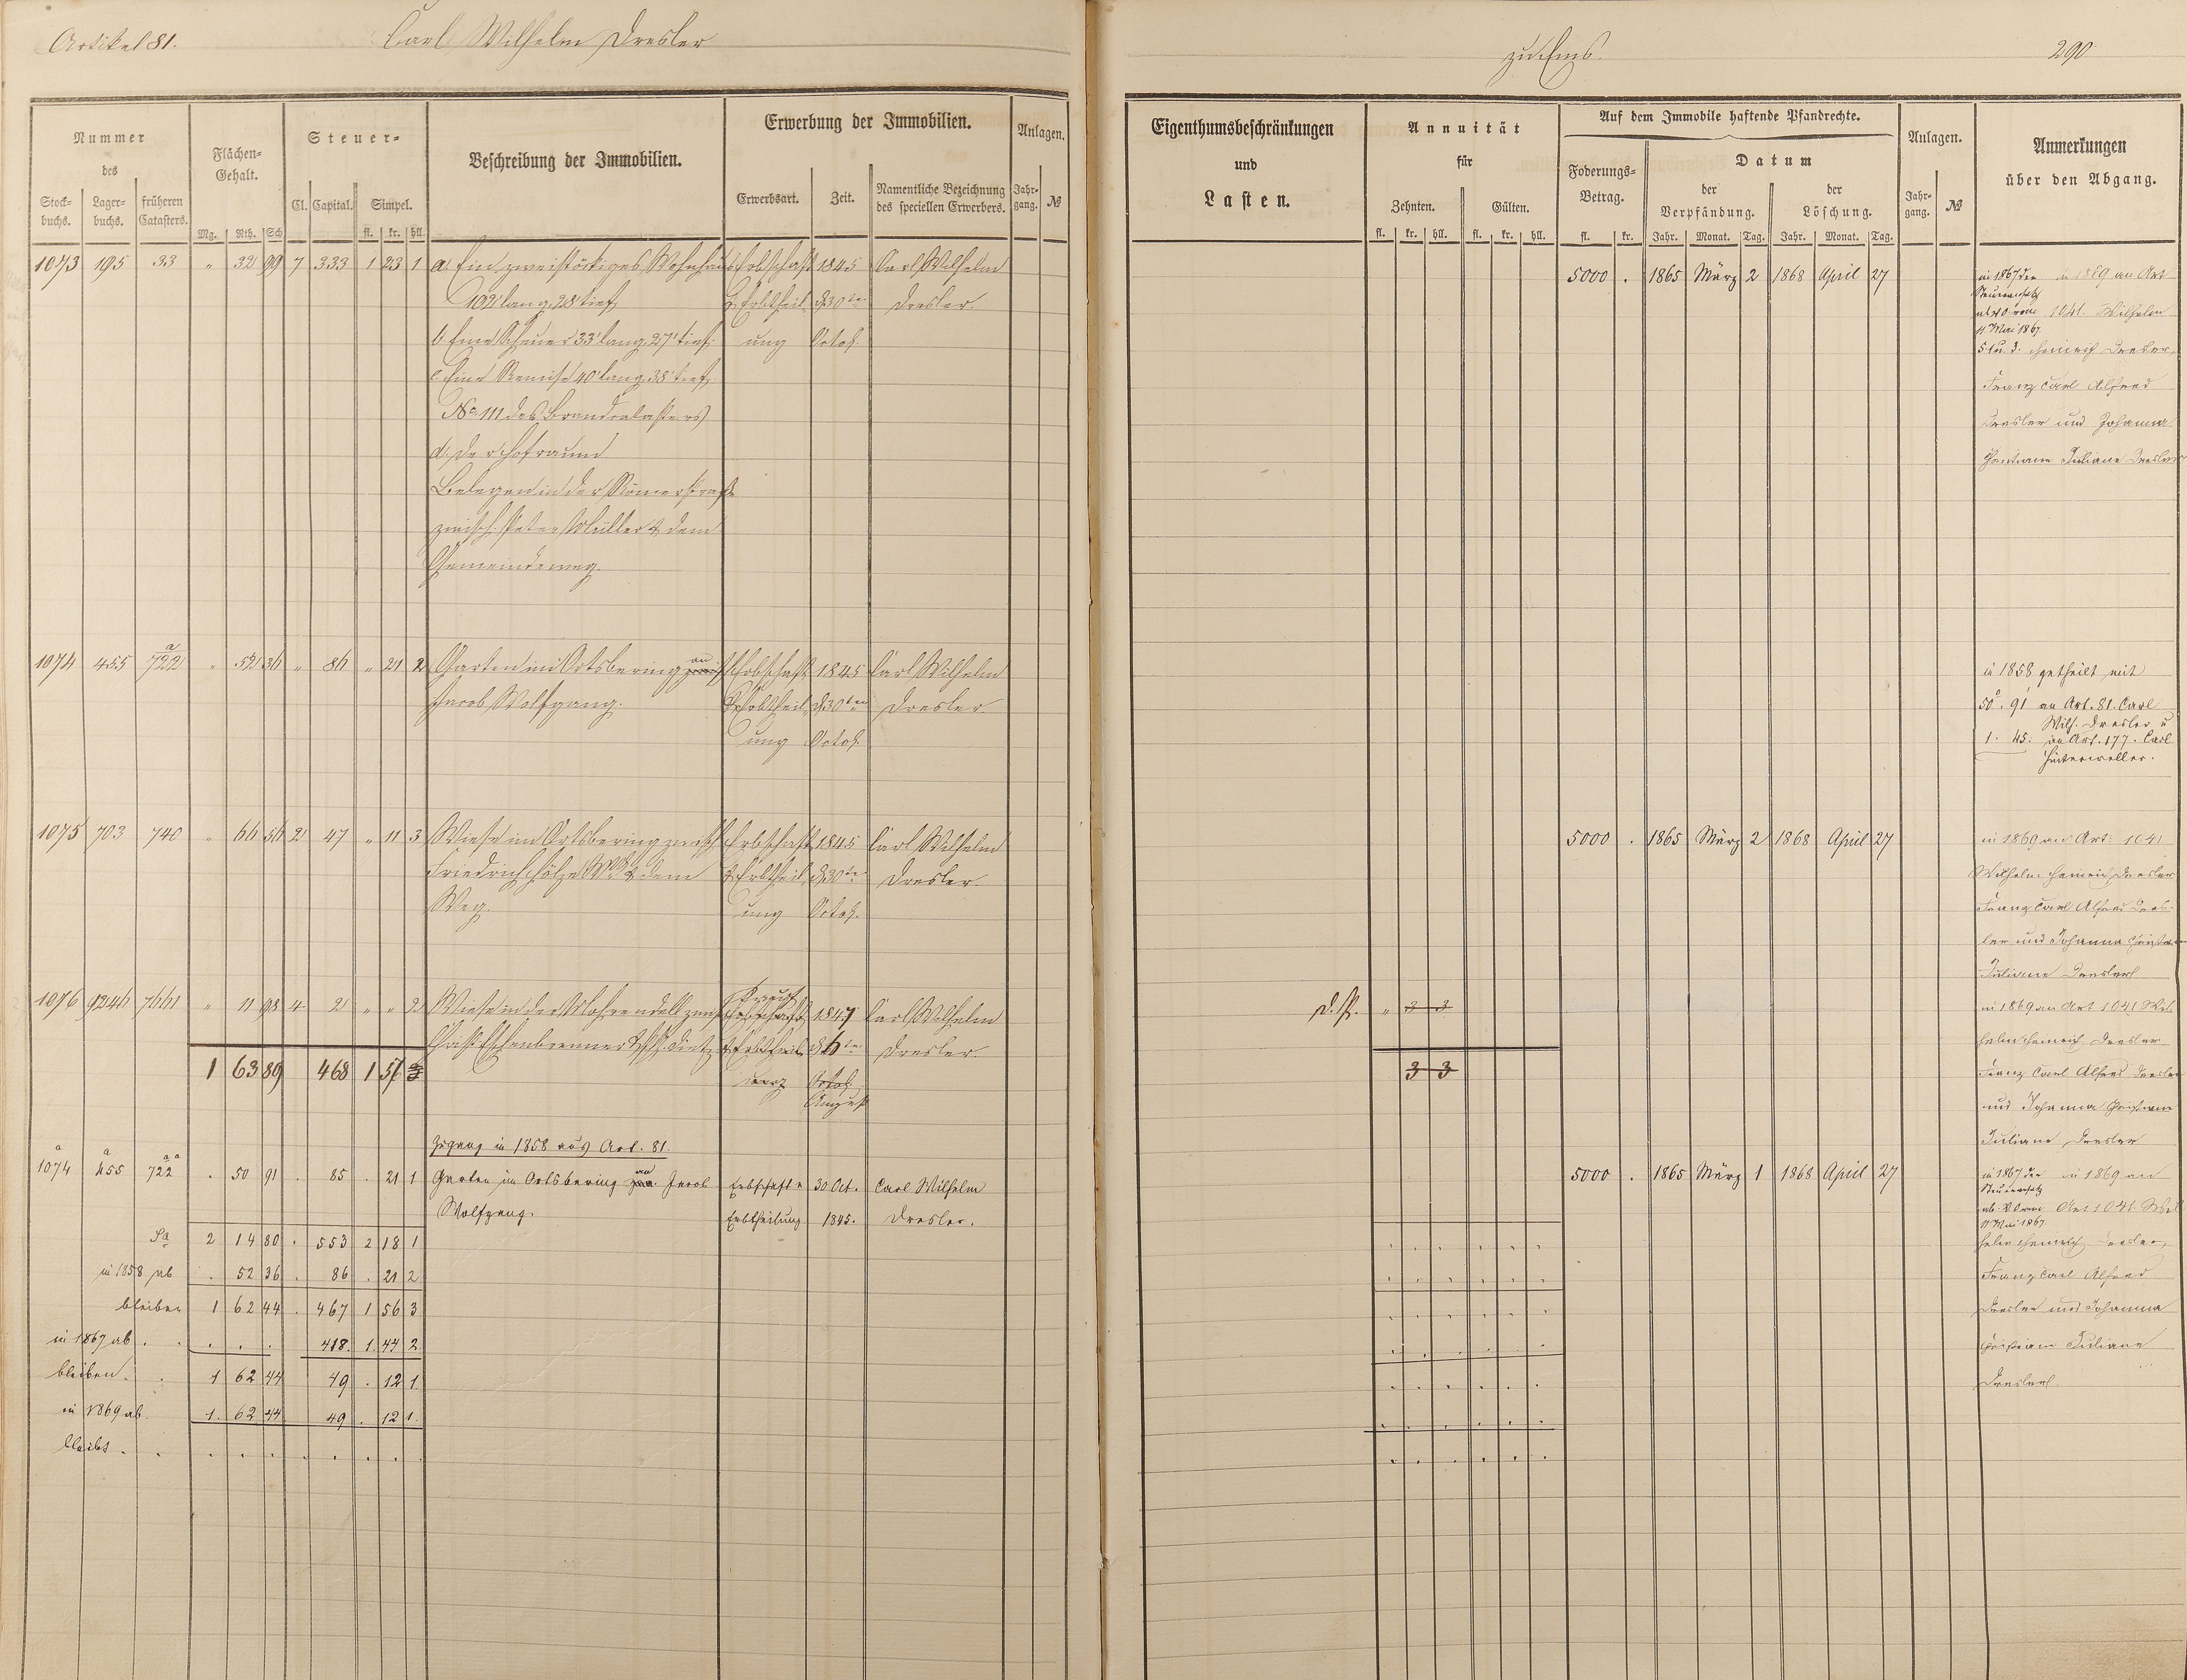 Artikel 81.
Carl Wilhelm Dresler
zu Ems.
290
Nummer
des
Stock-
buchs.
Lager-
buchs.
früheren
Catasters.
Flächen-
Gehalt.
Mg. Rth. Sch
Steuer-
Cl. Capital. Simpel.
fl. kr. hll.
Beschreibung der Immobilien.
Erwerbung der Immobilien.
Erwerbsart. Zeit.
Namentliche Bezeichnung
des speciellen Erwerbers.
Anlagen.
Jahr-
gang. №
1073 195 33 " 32 99 7 333 1 23 1 a. Ein zweistöckiges Wohnhaus Erbschaft 1845 Carl Wilhelm
102' lang, 28' tief & Erbtheil d. 30ten Dresler.
b. Eine Scheuer 33' lang, 27' tief. ung Octob.
c. Eine Remise 40' lang, 38' tief.
No. 111 des Brandcatasters
d. Der Hofraum
Belegen in der Römerstraße
zwisch. Peter Müller & dem
Gemeindeweg.
1074 455 722 a " 52 36 " 86 " 21 2 Garten im Ortsbering an Erbschaft 1845 Carl Wilhelm
Jacob Wolfgang. & Erbtheil d. 30ten Dresler.
ung Octob.
1075 703 740 " 66 56 2 47 " 11 3 Wiese im Ortsbering zwisch. Erbschaft 1845 Carl Wilhelm
Friedrich & dem & Erbtheil d. 30ten Dresler.
Weg. ung Octob.
1076 9246 7661 " 11 98 4 2 " " 2 Wiese in der Mohrendell zwisch. Erbschaft 1847 Carl Wilhelm
& Erbtheil d. 6ten Dresler.
1 63 89 468 1 57 3 ung Octob.
August
Zugang in 1858 aus Art. 81.
1074 a 455 a 722 aa . 50 91 . 85 . 21 1 Garten im Ortsbering an Jacob Erbschaft & 30 Oct. Carl Wilhelm
Wolfgang. Erbtheilung 1845. Dresler.
Sa 2 14 80 . 553 2 18 1
in 1858 ab . 52 36 . 86 . 21 2
bleiben 1 62 44 . 467 1 56 3
in 1867 ab . . . . . 418. 1. 44 2.
bleiben. . 1 62 44 49 . 12 1
in 1869 ab. 1. 62 44 49 . 12 1.
bleibt . . . . . . . . . . .
Eigenthumsbeschränkungen
und
Lasten.
Annuität
für
Zehnten. Gülten.
fl. kr. hll. fl. kr. hll.
Auf dem Immobile haftende Pfandrechte.
Foderungs-
Betrag.
fl. kr.
Datum
der
Verpfändung.
der
Löschung.
Jahr. Monat. Tag. Jahr. Monat. Tag.
Anlagen.
Jahr-
gang. №
Anmerkungen
über den Abgang.
5000 . 1865 März 2 1868 April 27 in 1867 den in 1869 an Art
Steueransatz
1041. Wilhelm
11 Mai 1867.
Heinrich Dresler,
Franz Carl Alfred
Dresler und Johanna
Christiane Juliane Dresler
in 1858 getheilt mit
50°. 91' an Art. 81. Carl
Wilh. Dresler u
1. 45. an Art. 177. Carl
Hinterwäller.
5000 . 1865 März 2 1868 April 27 in 1869 an Art: 1041
Wilhelm Heinrich Dresler
Franz Carl Alfred Dres-
ler und Johanna Christiane
Juliane Dresler
" 3 3 in 1869 an Art 1041 Wil-
helm Heinrich Dresler
3 3 Franz Carl Alfred Dresler
und Johanna Christiane
Juliane Dresler
5000 . 1865 März 1 1868 April 27 in 1867 den in 1869 an
Steueransatz
Art 1041 Wil-
11 Mai 1867.
helm Heinrich Dresler,
Franz Carl Alfred
Dresler und Johanna
Christiane Juliane
Dresler.